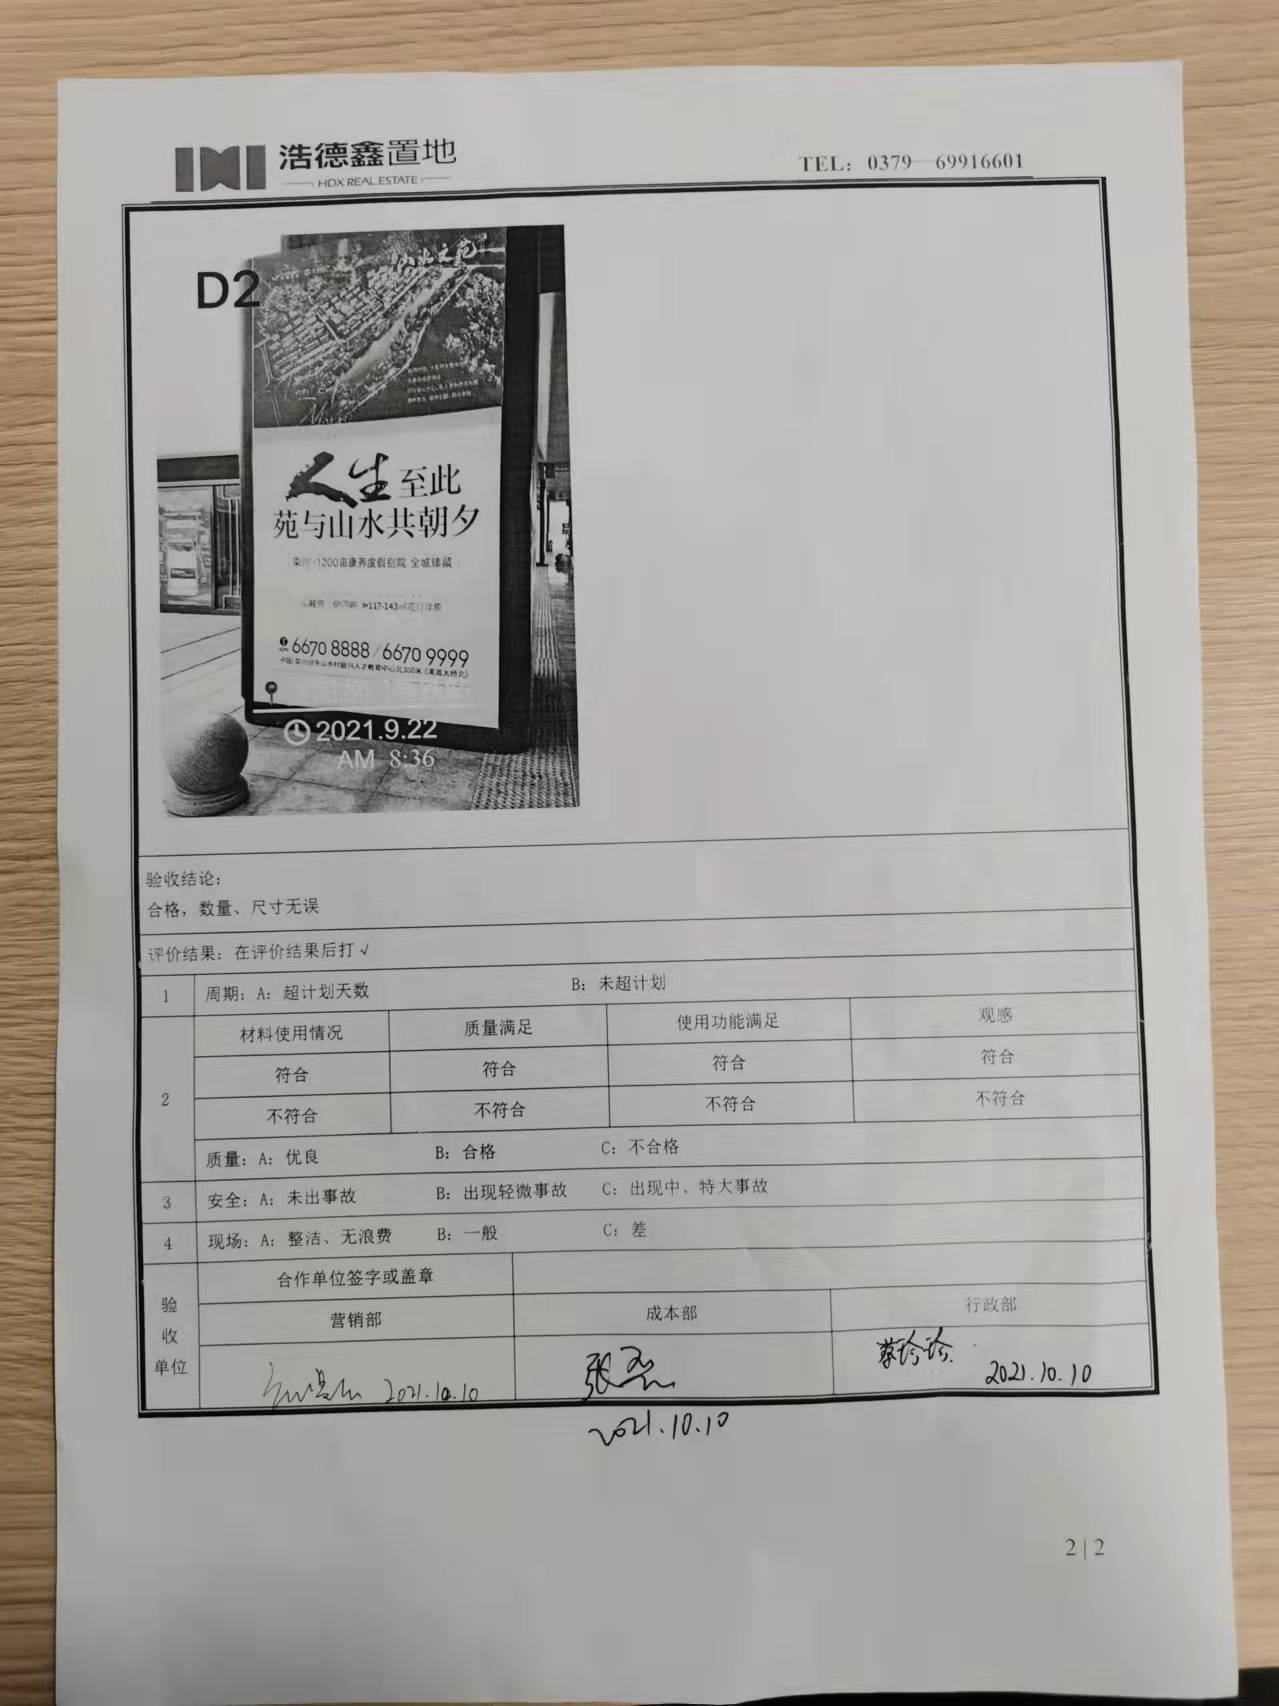 浩德鑫置地
HDX REAL ESTATE
TEL: 0379-69916601
D2
山水之苑
人生至此
苑与山水共朝夕
栾川·1200亩康养度假别院 全城臻藏
117-143㎡花汀洋房
6670 8888/6670 9999
2021.9.22
AM 8:36
验收结论:
合格，数量、尺寸无误
评价结果: 在评价结果后打√
1 周期: A: 超计划天数 B: 未超计划
材料使用情况 质量满足 使用功能满足 观感
符合 符合 符合 符合
2
不符合 不符合 不符合 不符合
质量: A: 优良 B: 合格 C: 不合格
3 安全: A: 未出事故 B: 出现轻微事故 C: 出现中、特大事故
4 现场: A: 整洁、无浪费 B: 一般 C: 差
验收单位
合作单位签字或盖章
营销部 成本部 行政部
2021.10.10 张 蔡珍珍 2021.10.10
2021.10.10
2|2